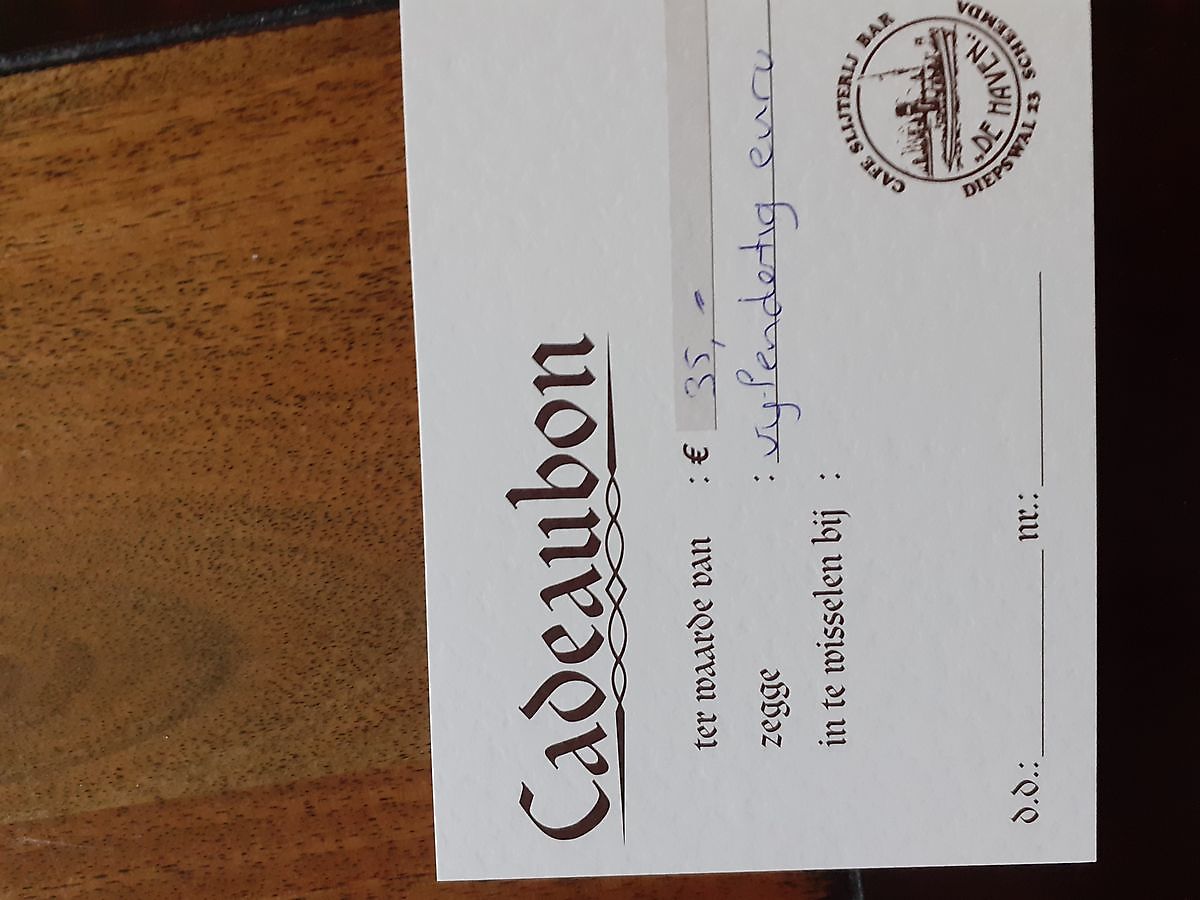 Cadeaubon
ter waarde van : € 35,-
zegge : vijfendertig euro
in te wisselen bij :
CAFE SLIJTERIJ BAR
„DE HAVEN.”
DIEPSWAL 23 SCHEEMDA
d.d.: nr.: